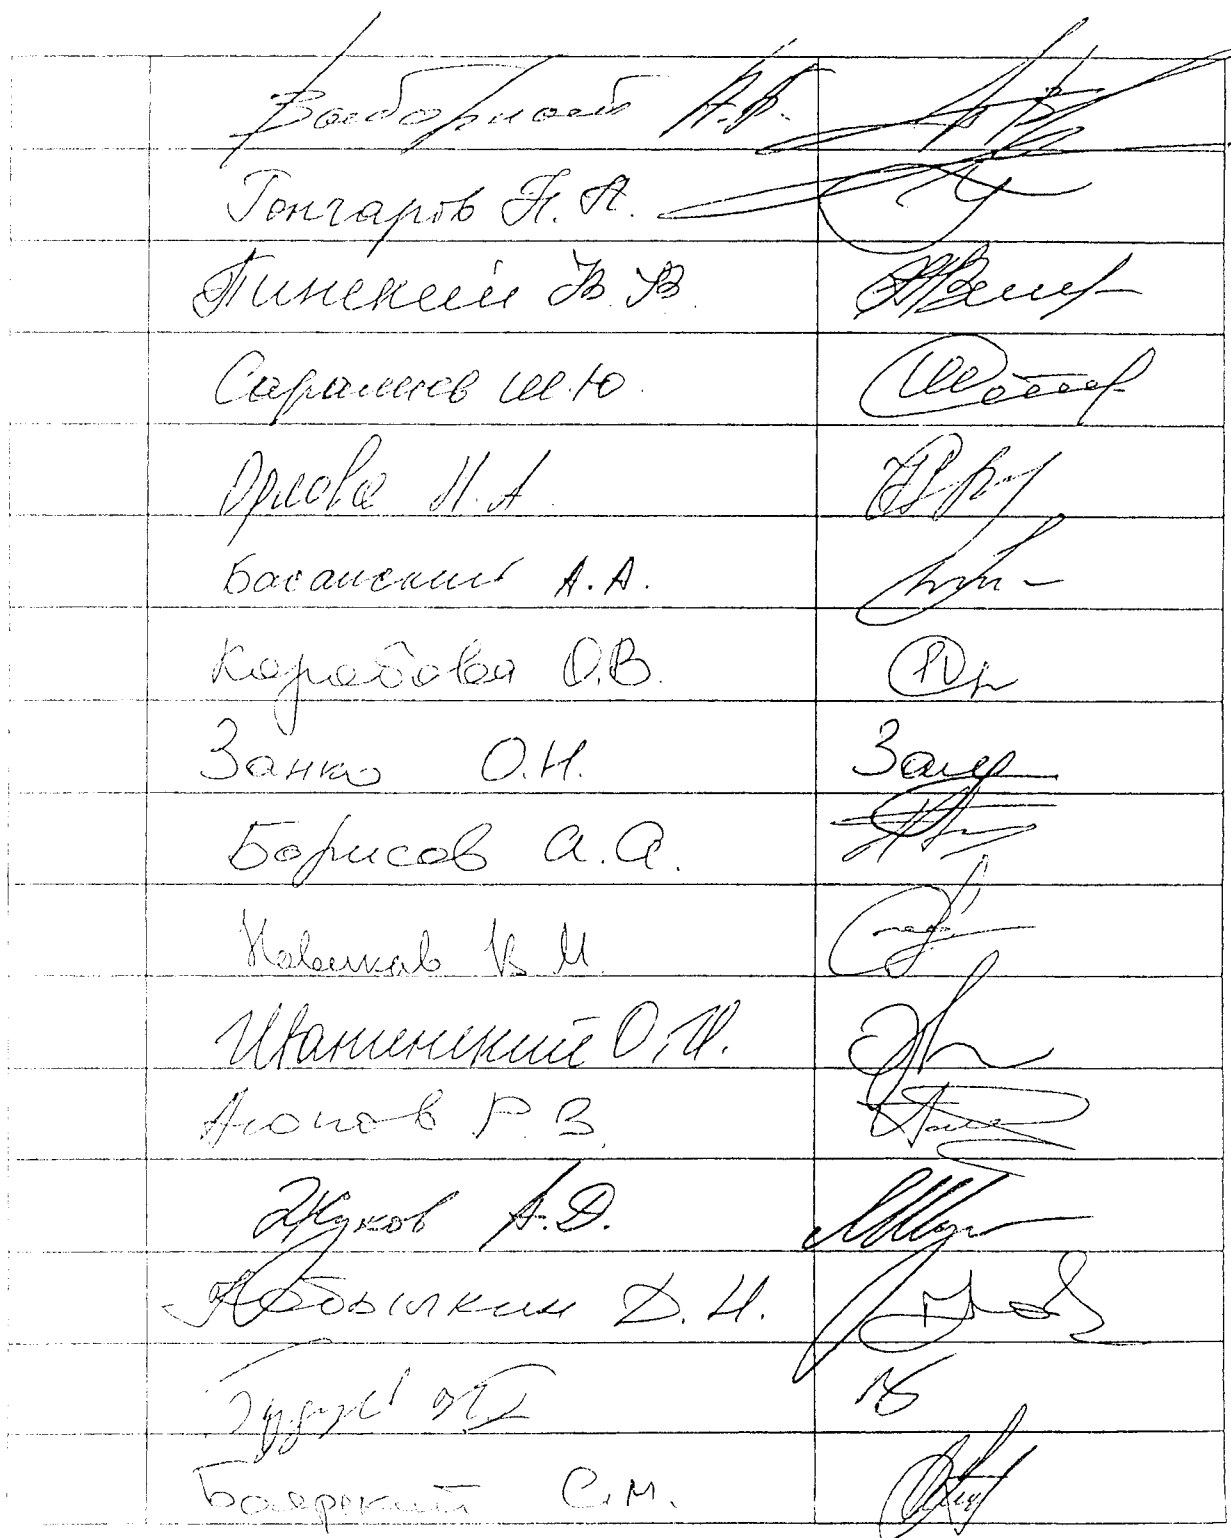 Выборный А.В.
Гончаров Н.А.
Пинский В.В.
Саралиев Ш.Ю.
Орлова Н.А.
Басанский А.А.
Коробова О.В.
Занко О.Н.
Борисов А.А.
Новиков В.М.
Иванинский О.И.
Аюпов Р.В.
Жуков А.Д.
Кобылкин Д.Н.
Боярский С.М.